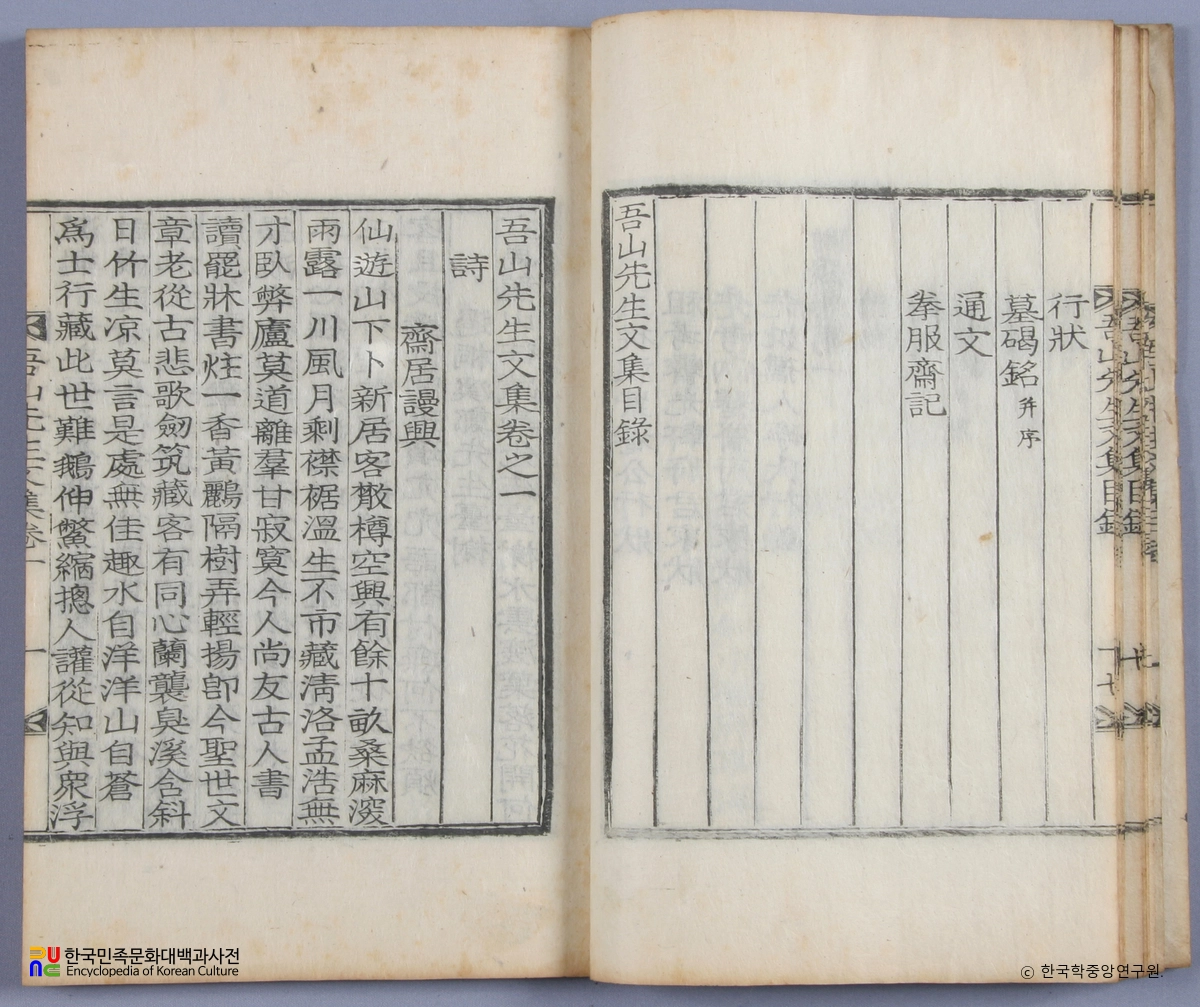 行狀
墓碣銘 幷序
通文
拳服齋記
吾山先生文集目錄
吾山先生文集卷之一
詩
齋居謾興
仙遊山下卜新居客散樽空興有餘十畝桑麻深
雨露一川風月剩襟裾溫生不市藏淸洛孟浩無
才臥弊廬莫道離羣甘寂寞今人尚友古人書
讀罷牀書炷一香黃鸝隔樹弄輕揚卽今聖世文
章老從古悲歌劒筑藏客有同心蘭襲臭溪含斜
日竹生凉莫言是處無佳趣水自洋洋山自蒼
爲士行藏此世難鵝伸鱉縮摠人讙從知與衆浮
吾山先生文集卷一 一
한국민족문화대백과사전
Encyclopedia of Korean Culture
© 한국학중앙연구원.